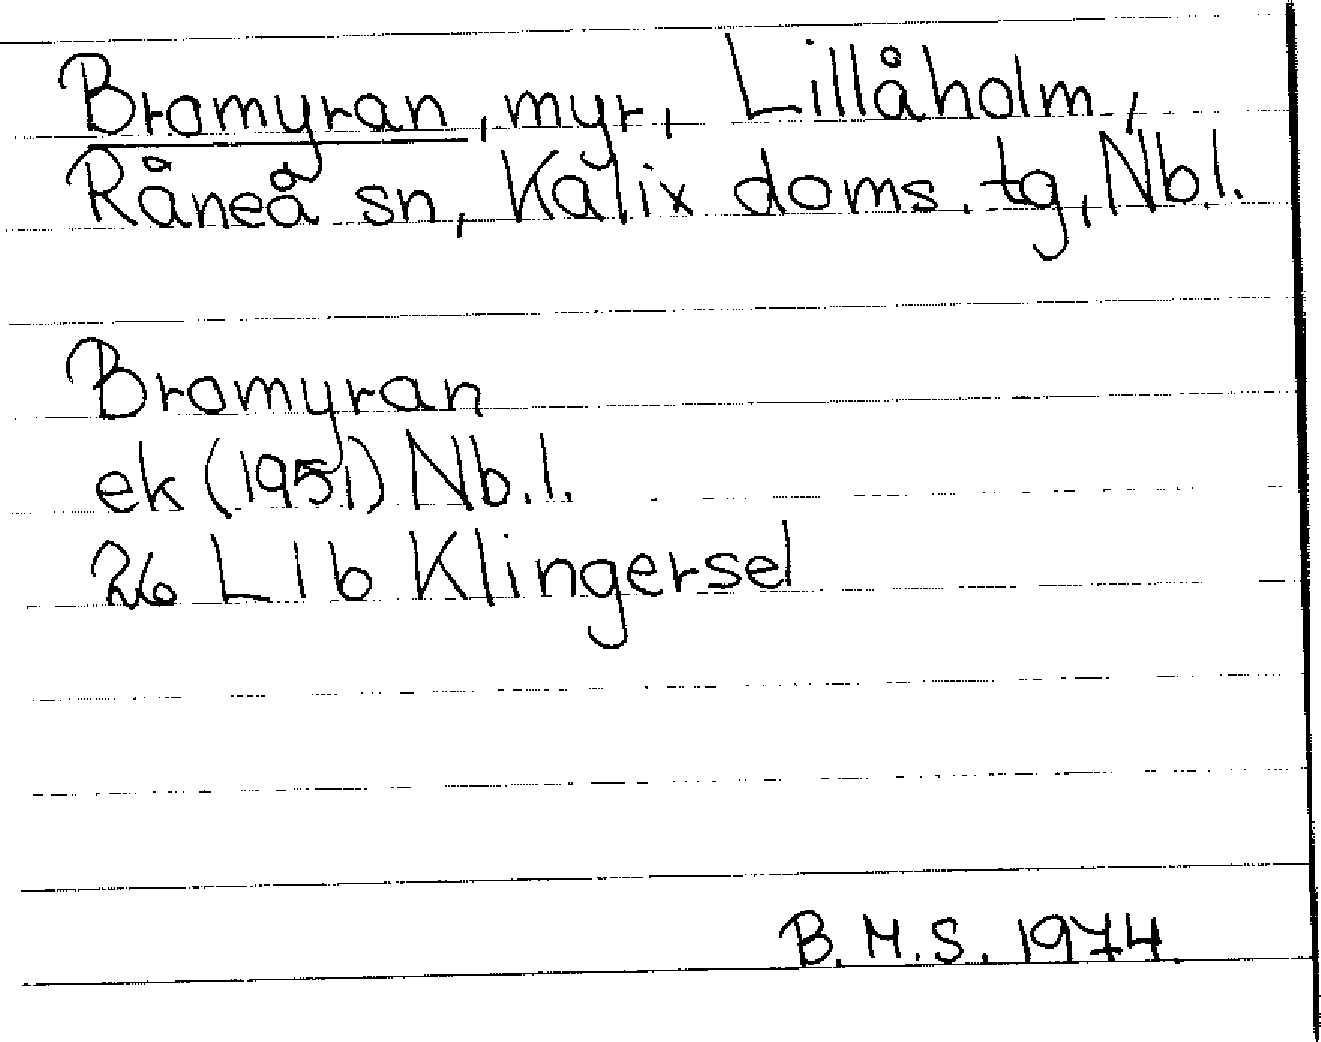 Bromyran, myr, Lillåholm,
Råneå sn, Kalix doms. tg, Nb.l.
Bromyran
ek (1951) Nb.l.
26 L 1 b Klingersel
B.M.S. 1974.